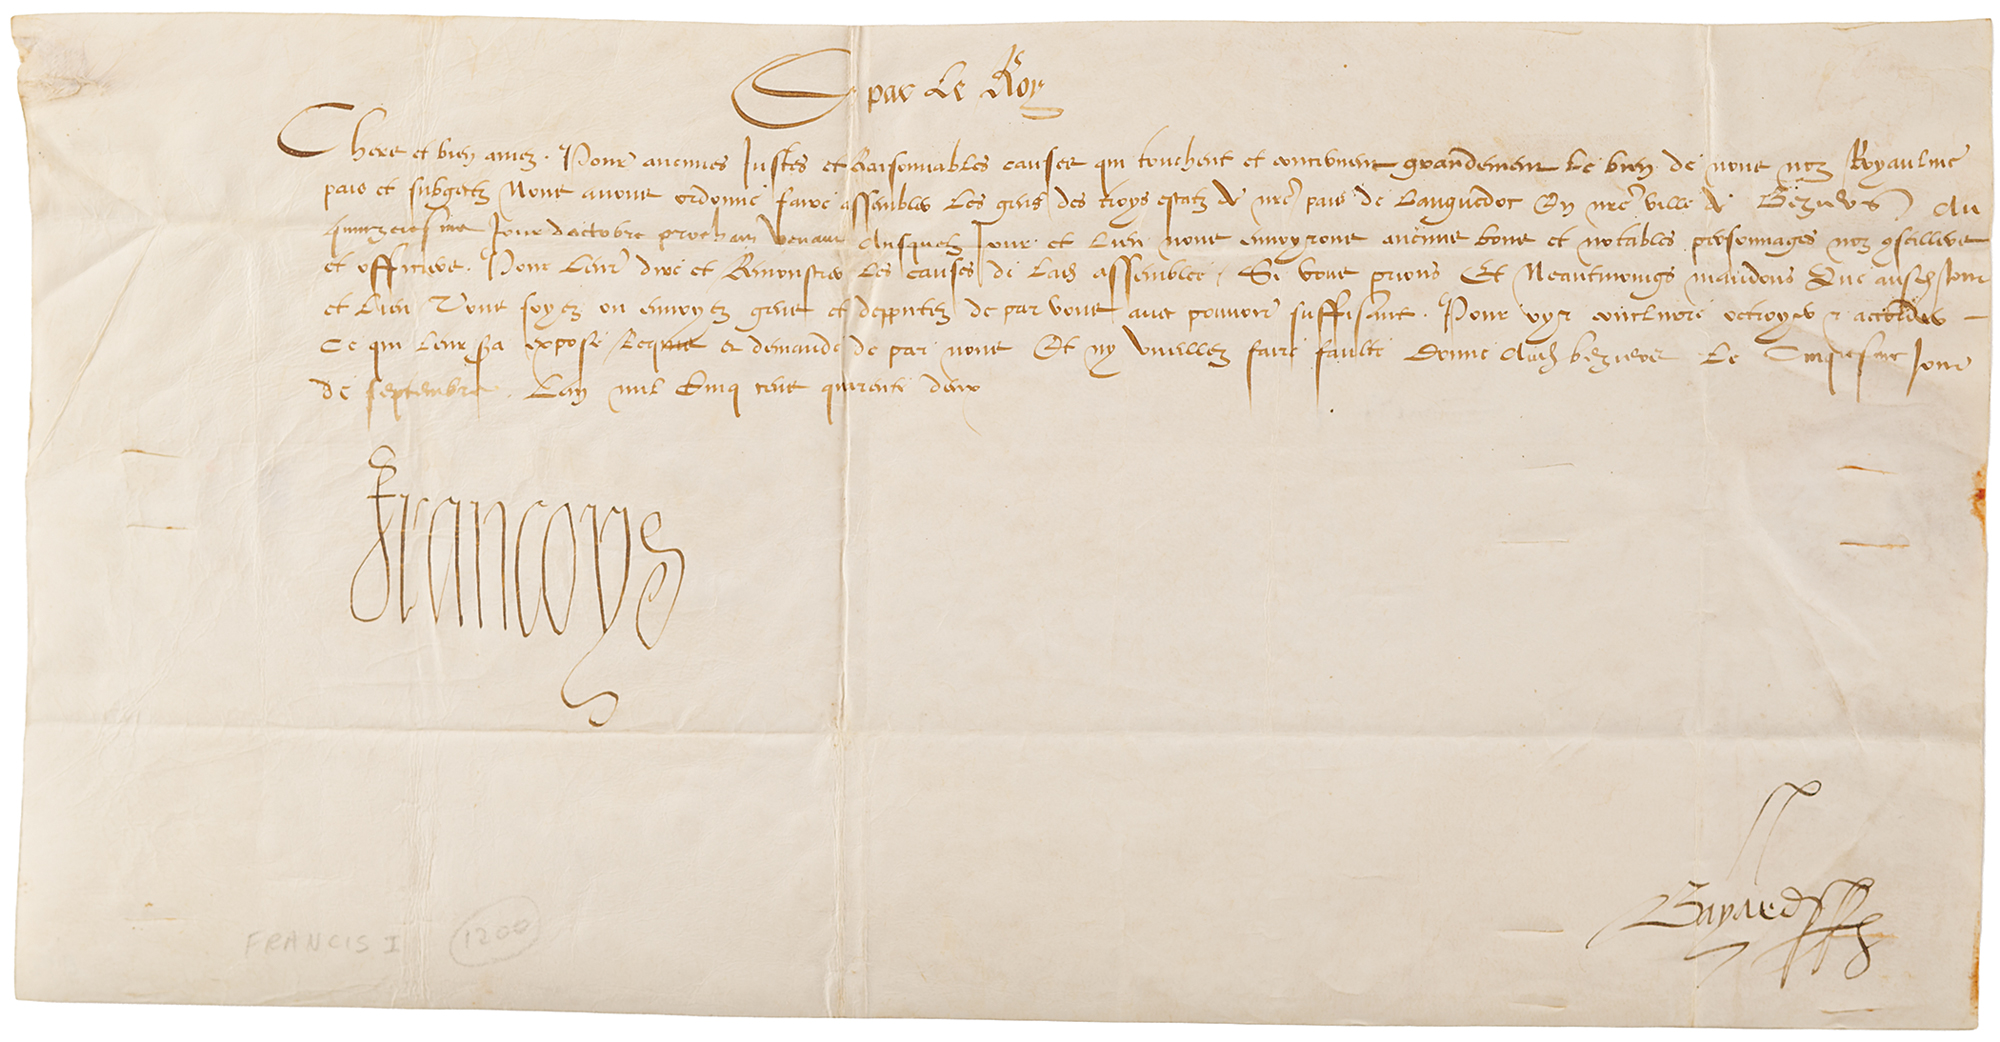 De par Le Roy
Chers et bien amez. Pour aucunes Justes et Raisonnables causes qui touchent et concernent grandement Le bien de nous noz Royaulme
pais et subgectz Nous avons ordonné faire assembler Les gens des troys estatz de nre pais de Languedoc En nre ville de Beziers Au
quinzeiesme Jour doctobre prochain venant Ausquelz Jour et Lieu nous envoyrons aucuns bons et notables personnages noz conseillers
et officiers. Pour Leur dire et Remonstrer Les causes de Lad assemblee. Si vous prions Et Neantmoings mandons Que ausd Jour
et Lieu Vous soyez ou envoyez gens et depputez de par vous avec pouvoir suffisant. Pour oyr conclure octroyer & accorder
Ce qui Leur sera exposé Requis et demandé de par nous Et ny vueillez faire faulte Donné Aud beziers Le Jour
de septembre. Lan mil Cinq cens quarente deux
Francoys
Bayard
FRANCIS I 1200